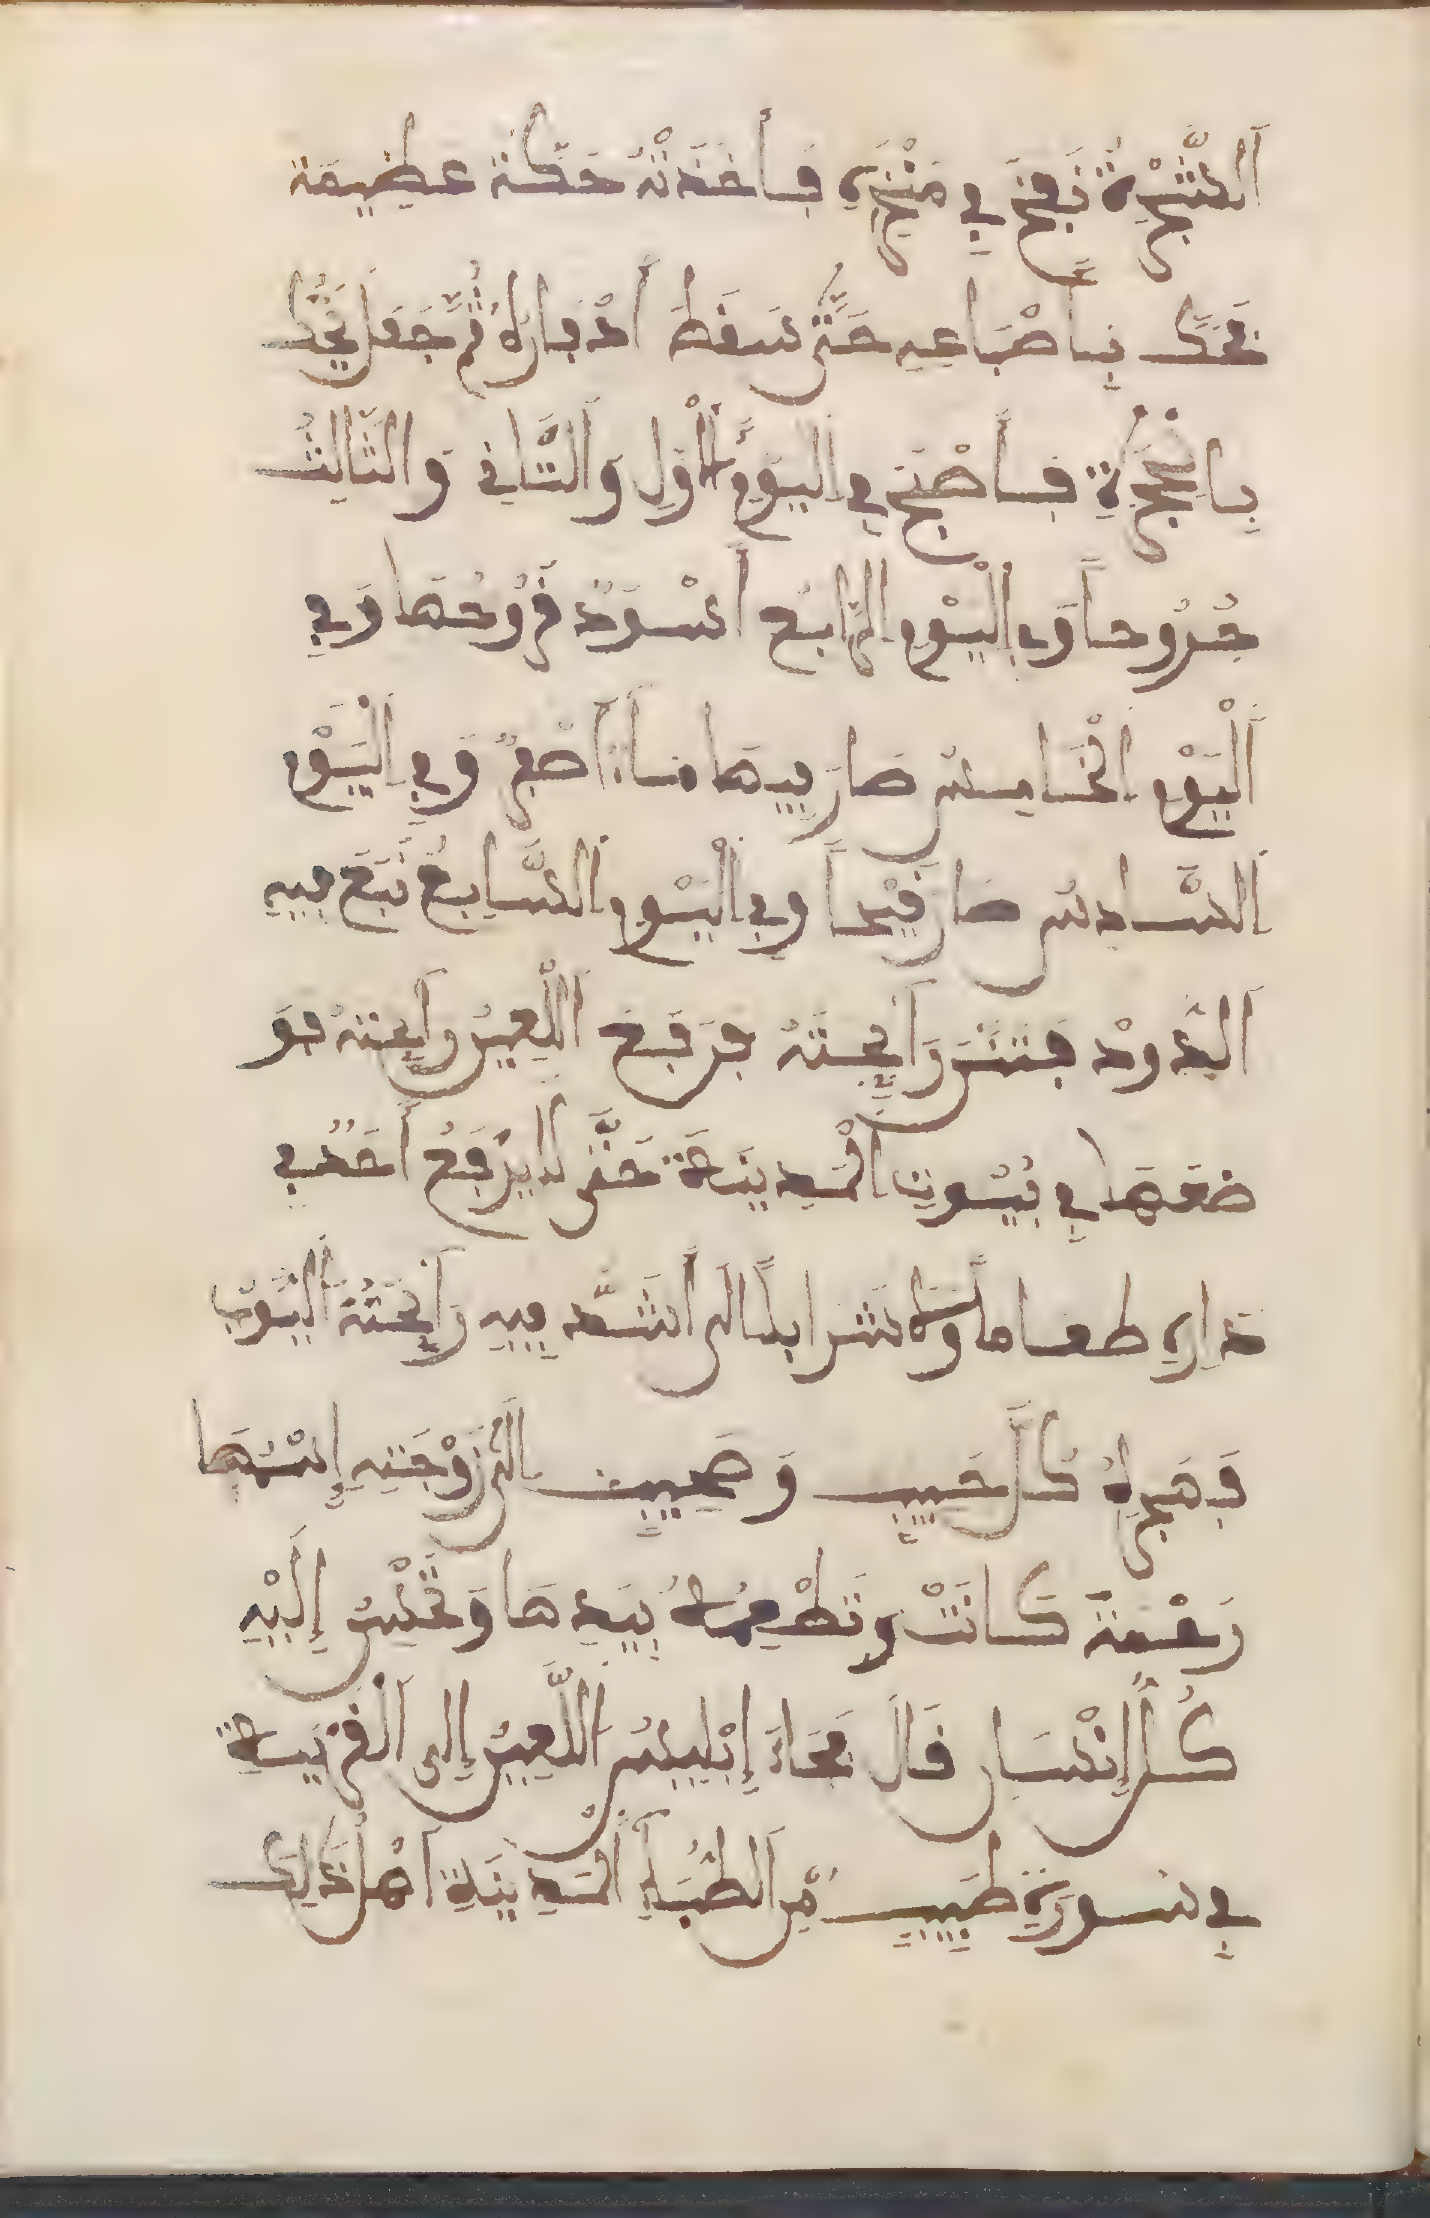 الشَّجْرَةُ نَفَخَ فِي مَنْخِرِهِ فَأَخَذَتْهُ حَكَّة عظِيمَة
فحَكّ بِأَصْبَاعِهِ حَتَّى سَقَطَ أَدْفَارُهُ ثُمَّ جَعَلَ يَحُكُّ
بِالحَجَرَةِ فَأَصْبَحَ فِي اليَوْمِ الْأَوَّلِ وَالثَّانِي وَالثَّالِث
جُرُوحاً وَفِي الْيَوْمِ الرَّابِع أَسْوَدَّ قُرُوحُهَا وَفِي
اَلْيَوْمِ الْخَامِس صَارَ فِيهَا مَاء أَصْفَرُ وَفِي الْيَوْمِ
السَّادِس صَارَ قَيْحاً وفِي الْيَوْمِ السَّابِعُ نَبَعَ فِيهِ
الدُّودْ فَنَتَنَ رَائِحَتُهُ فَرَفَعَ اللَّعِينُ رَائِحَتهُ فَوَ
ضَعَهَا فِي بُيُوتِ الْمَدِينَةِ حَتَّى لَا يَرْفَعُ أَحَدٌ فِي
دَارِهِ طعَاماً وَلَا شَرَاباً الى أَشَدّ فِيهِ رَائِحَتُهُ الْبُيُوت
فَهَجَرَهُ كُلّ حَبِيبٍ وَصَحِيبٍ الى زَوْجَتِهِ إِسْمُهَا
رَحْمَةَ كَانَتْ وَتُطْعِمُهُ بِيَدِهَا وَتَحْبِسُ إِلَيْهِ
كُلّ إِنْسَانٍ قَالَ فَجَاءَ إِبْلِيسُ اللَّعِينُ إِلى الْقَرْيَةِ
فِي سورَةِ طَبِيبٍ مِّن الطُّبَاءِ الْمَدِينَةِ أَهْلَ ذَلِكَ